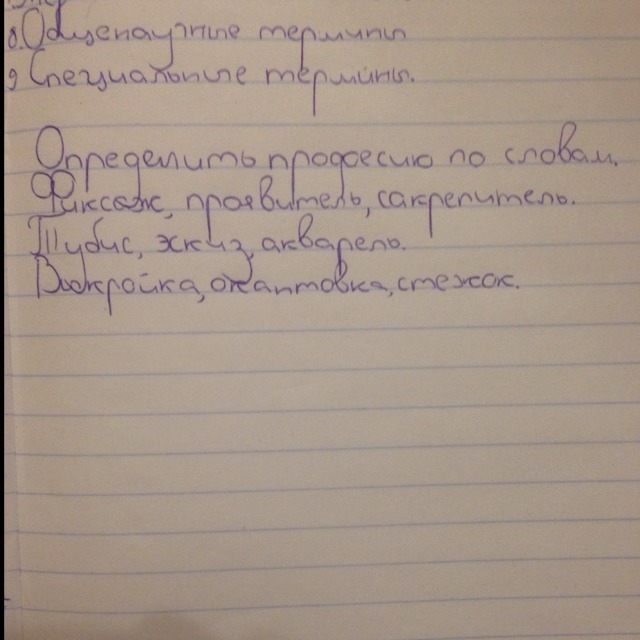 8. Общенаучные термины
9 Специальные термины.
Определить профессию по словам.
Фиксаж, проявитель, сакрепитель.
Тубис, эскиз, акварель.
Выкройка, окантовка, стежок.